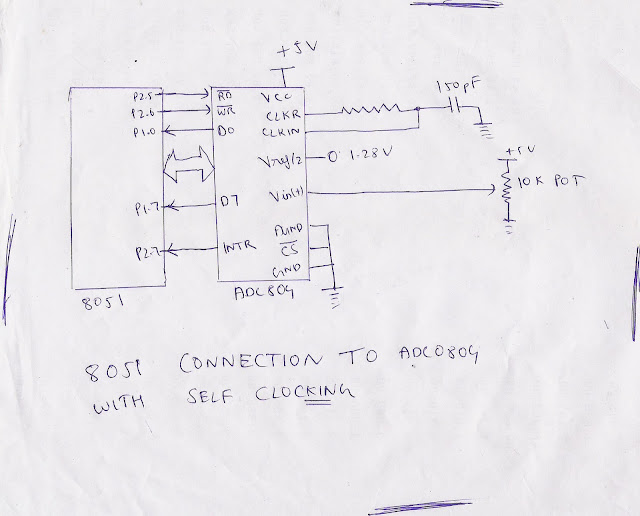 +5V
150pF
P2.5 RD VCC
P2.6 WR CLKR
P1.0 D0 CLKIN
Vref/2 1.28V
+5V
10K POT
P1.7 D7 Vin(+)
AGND
P2.7 INTR CS
GND
8051 ADC804
8051 CONNECTION TO ADC0804
WITH SELF CLOCKING